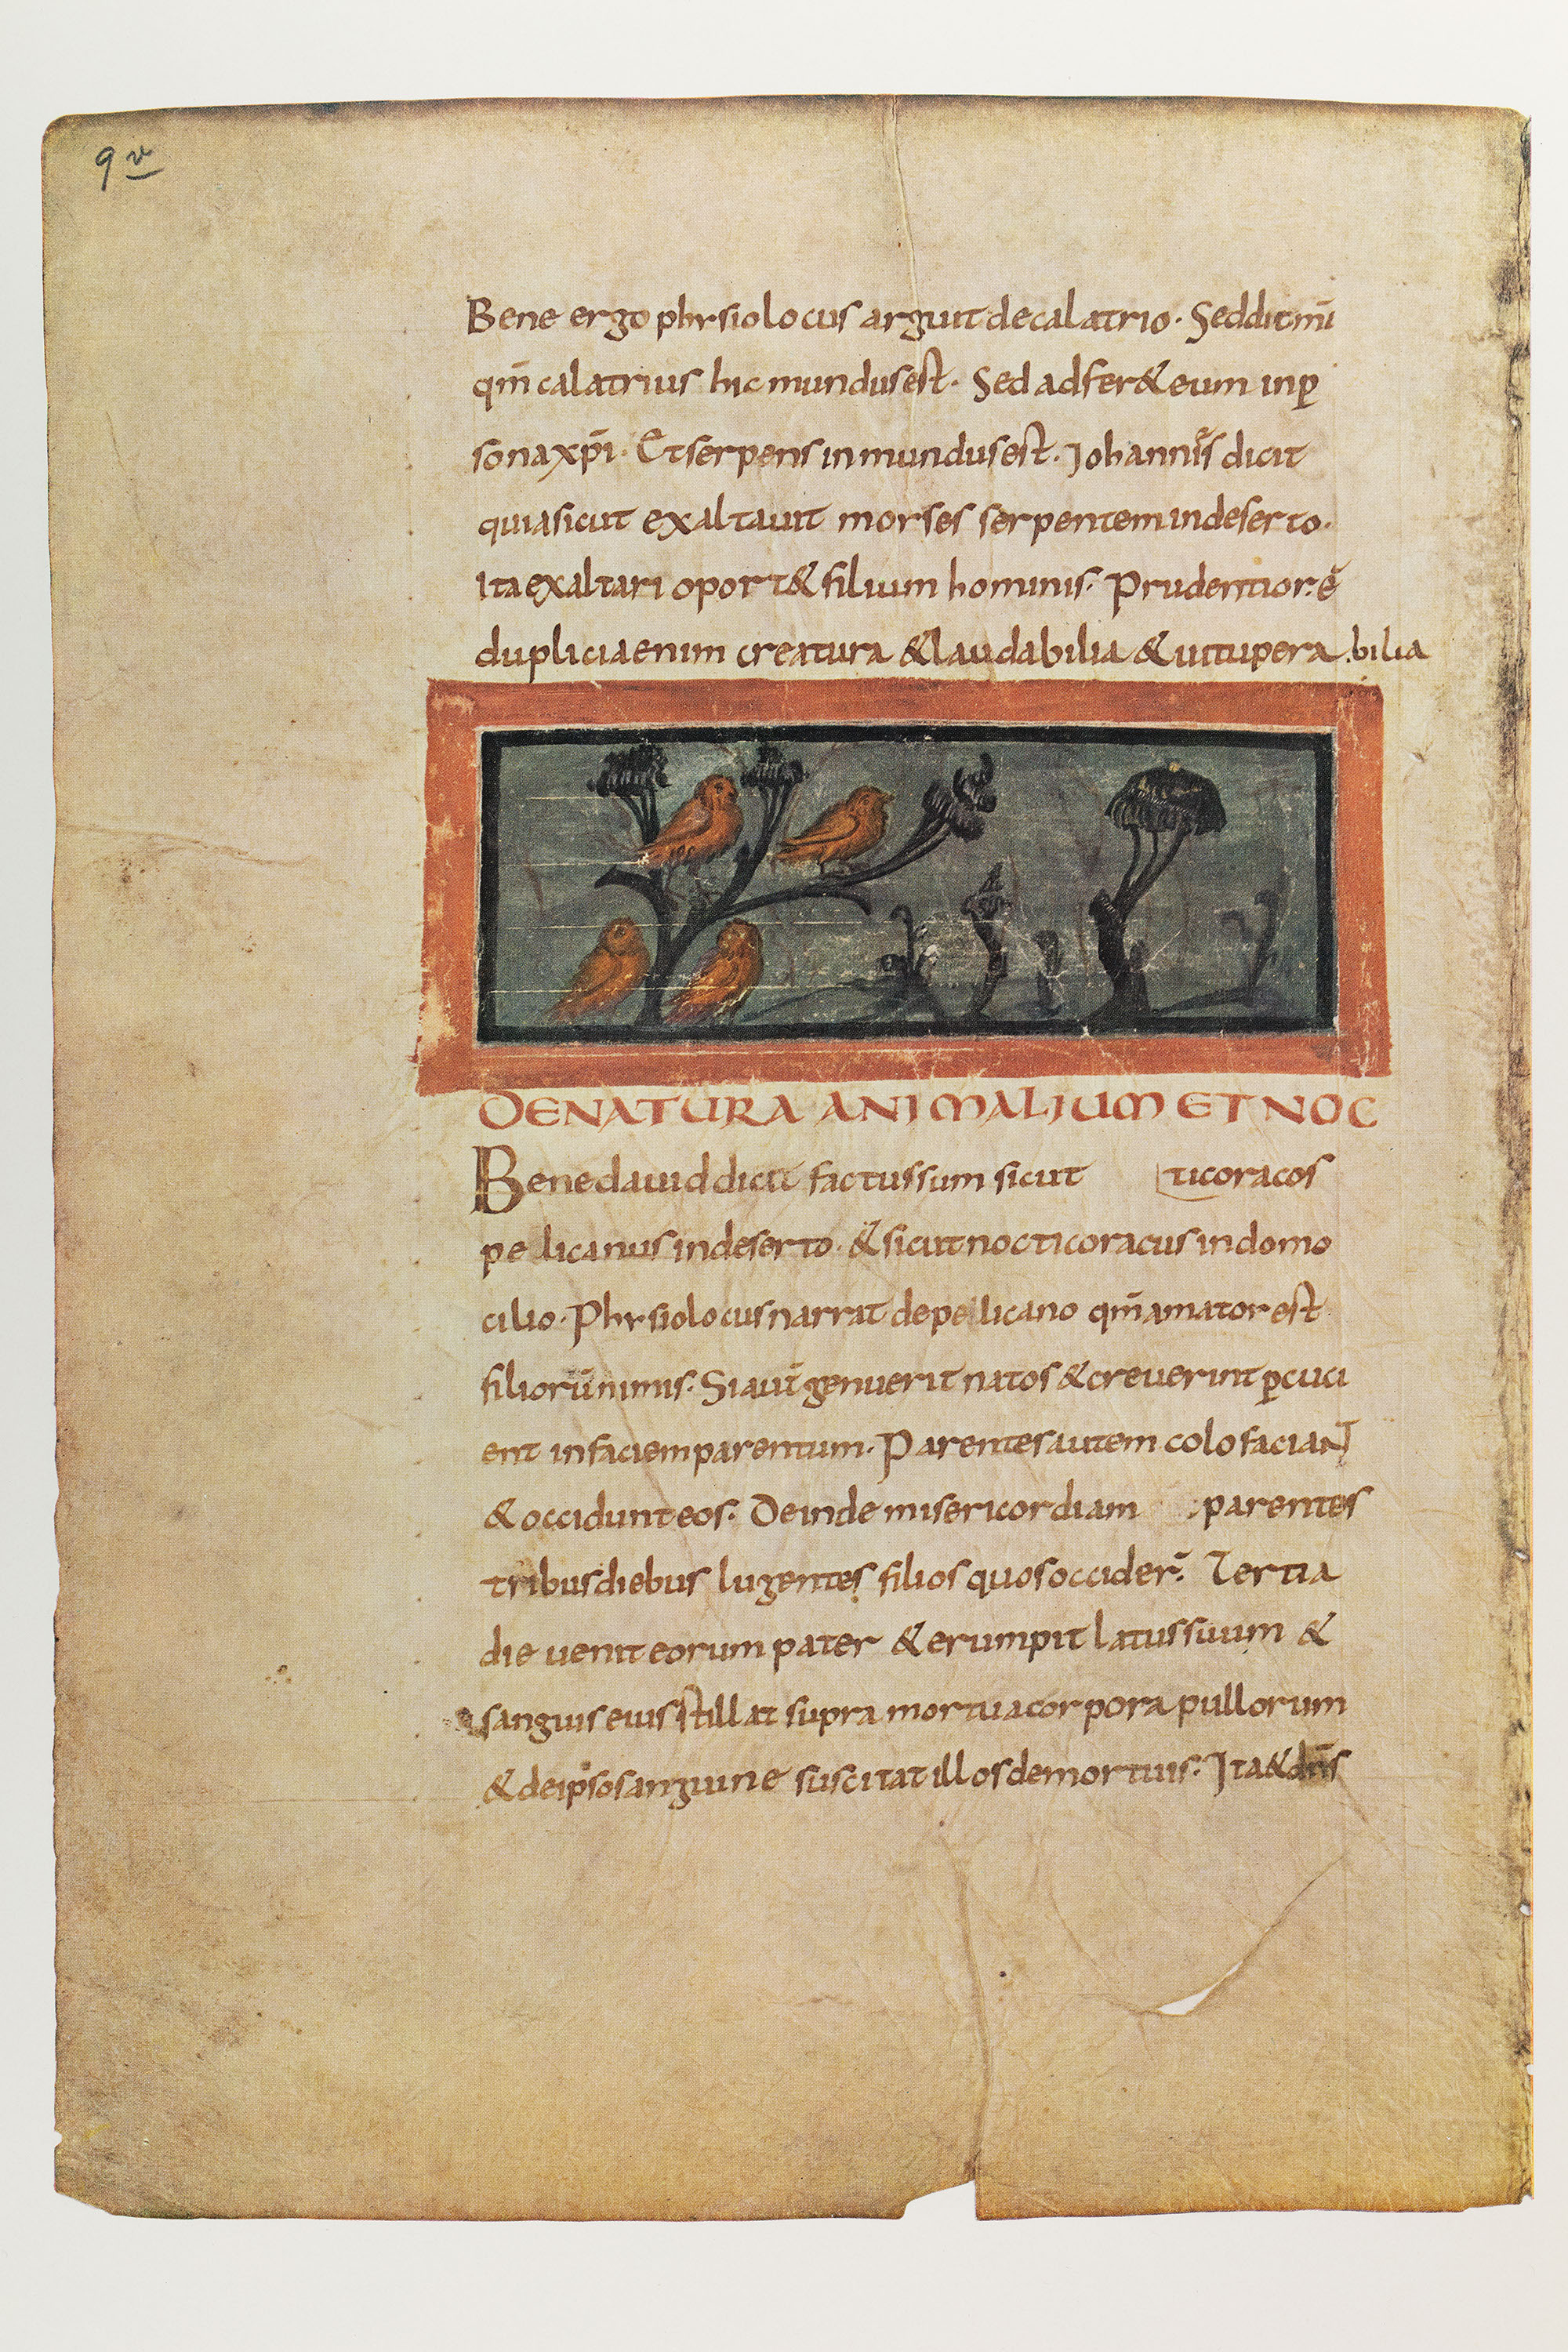 9v
Bene ergo phisiolocus arguit decalatrio. Sed dit mī
qm̄ calatrius hic mundus est. Sed adfer& eum inp̱
sona xp̄i. Et serpens inmundus est. Johannis dicit
quia sicut exaltauit moyses serpentem in deserto.
ita exaltari oport& filium hominis. Prudentior. ē
duplicia enim creatura & laudabilia & uitupera.bilia
DE NATURA ANIMALIUM ET NOC
Bene dauid dicit factus sum sicut ticoracos
pe licanus in deserto. & sicut nocticoracus in domo
cilio. Phisiolocus narrat de pellicano qm̄ amator est
filiorū nimis. Si aut̄ genuerit natos & creuerint p̱cuci
ent in faciem parentum. Parentes autem colofaciant
& occidunt eos. Deinde misericordiam parentes
tribus diebus lugentes filios quos occider̄. Tertia
die uenit eorum pater & erumpit latus suum &
sanguis eius stillat supra mortua corpora pullorum
& de ipso sanguine suscitat illos de mortuis. Ita & dn̄s